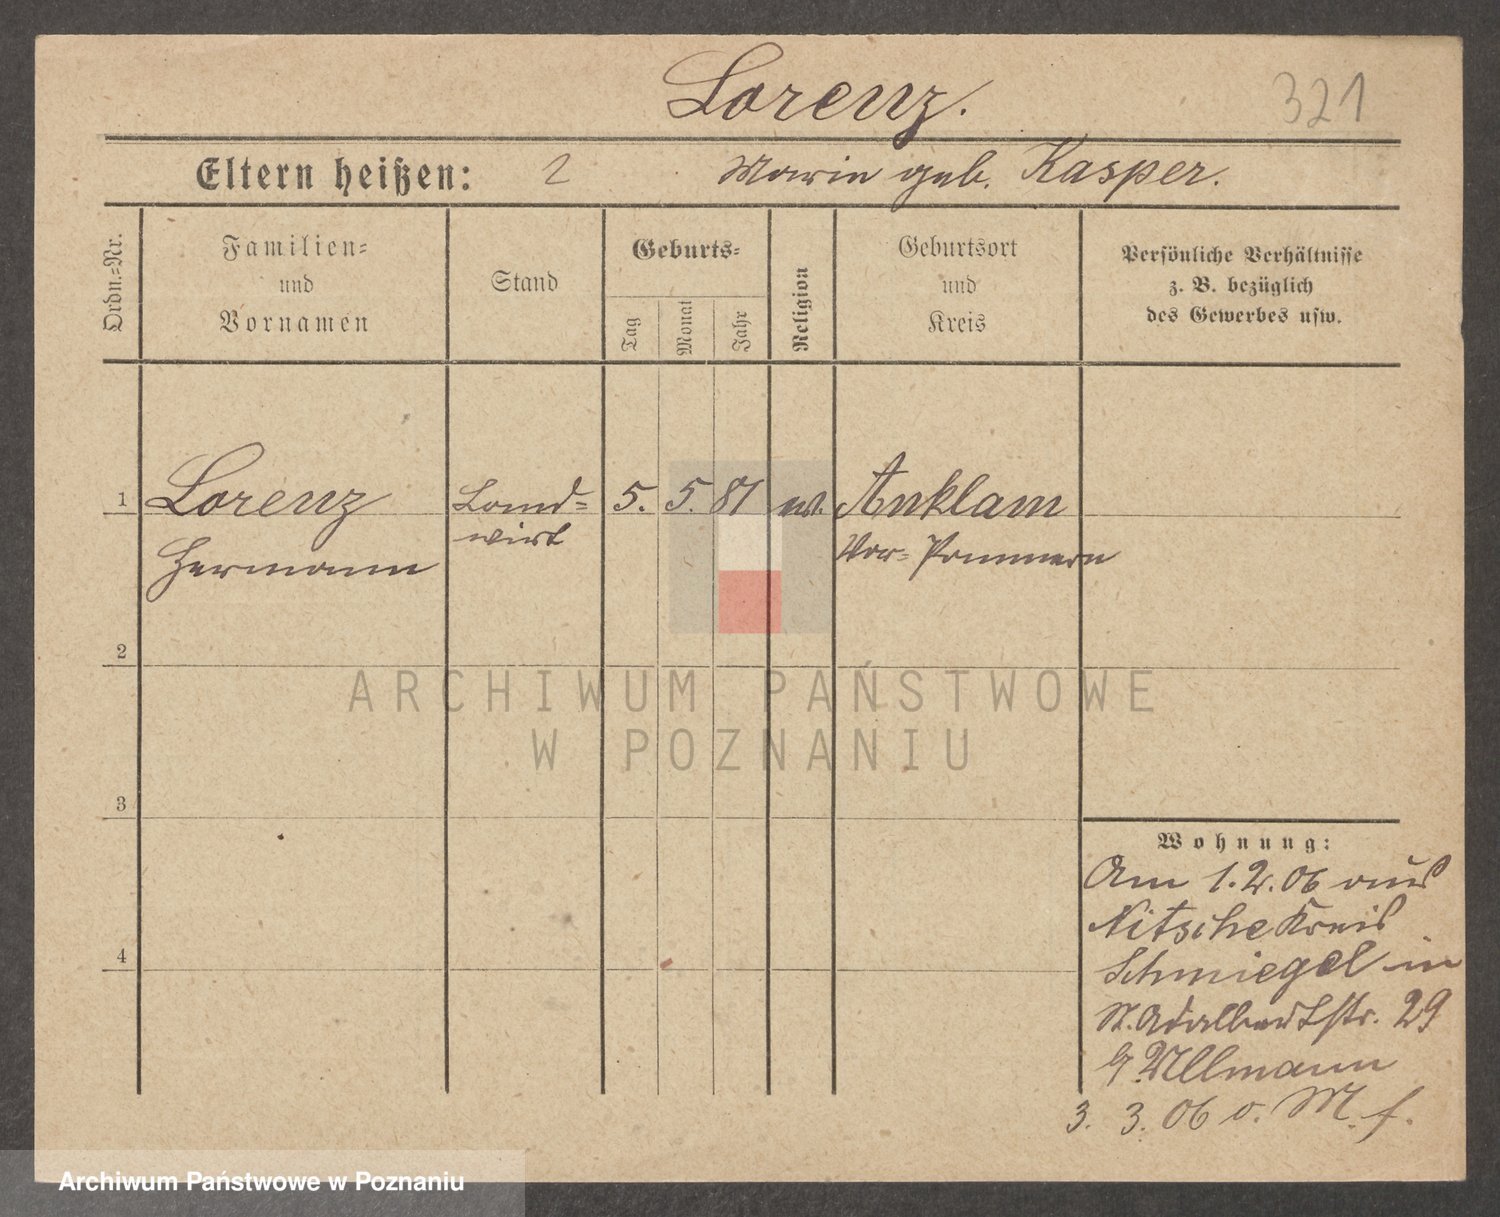 Lorenz.
321
Eltern heißen: 2 Marie geb. Kasper.
Ordn.-Nr.
Familien-
und
Vornamen
Stand
Geburts-
Tag
Monat
Jahr
Religion
Geburtsort
und
Kreis
Persönliche Verhältnisse
z. B. bezüglich
des Gewerbes usw.
1 Lorenz Land- 5. 5. 81 ev. Anklam
wirt
Hermann
Vor-Pommern
2
ARCHIWUM PAŃSTWOWE
W POZNANIU
3
Wohnung:
Am 1.2.06 aus
Nitsche Kreis
Schmiegel in
St. Adalbertstr. 29
b/ Ullmann
3. 3. 06 o. M. f.
4
Archiwum Państwowe w Poznaniu